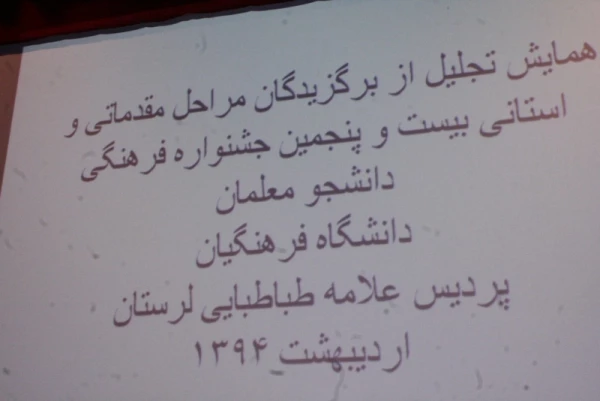 همایش تجلیل از برگزیدگان مراحل مقدماتی و
استانی بیست و پنجمین جشنواره فرهنگی
دانشجو معلمان
دانشگاه فرهنگیان
پردیس علامه طباطبایی لرستان
اردیبهشت ۱۳۹۴